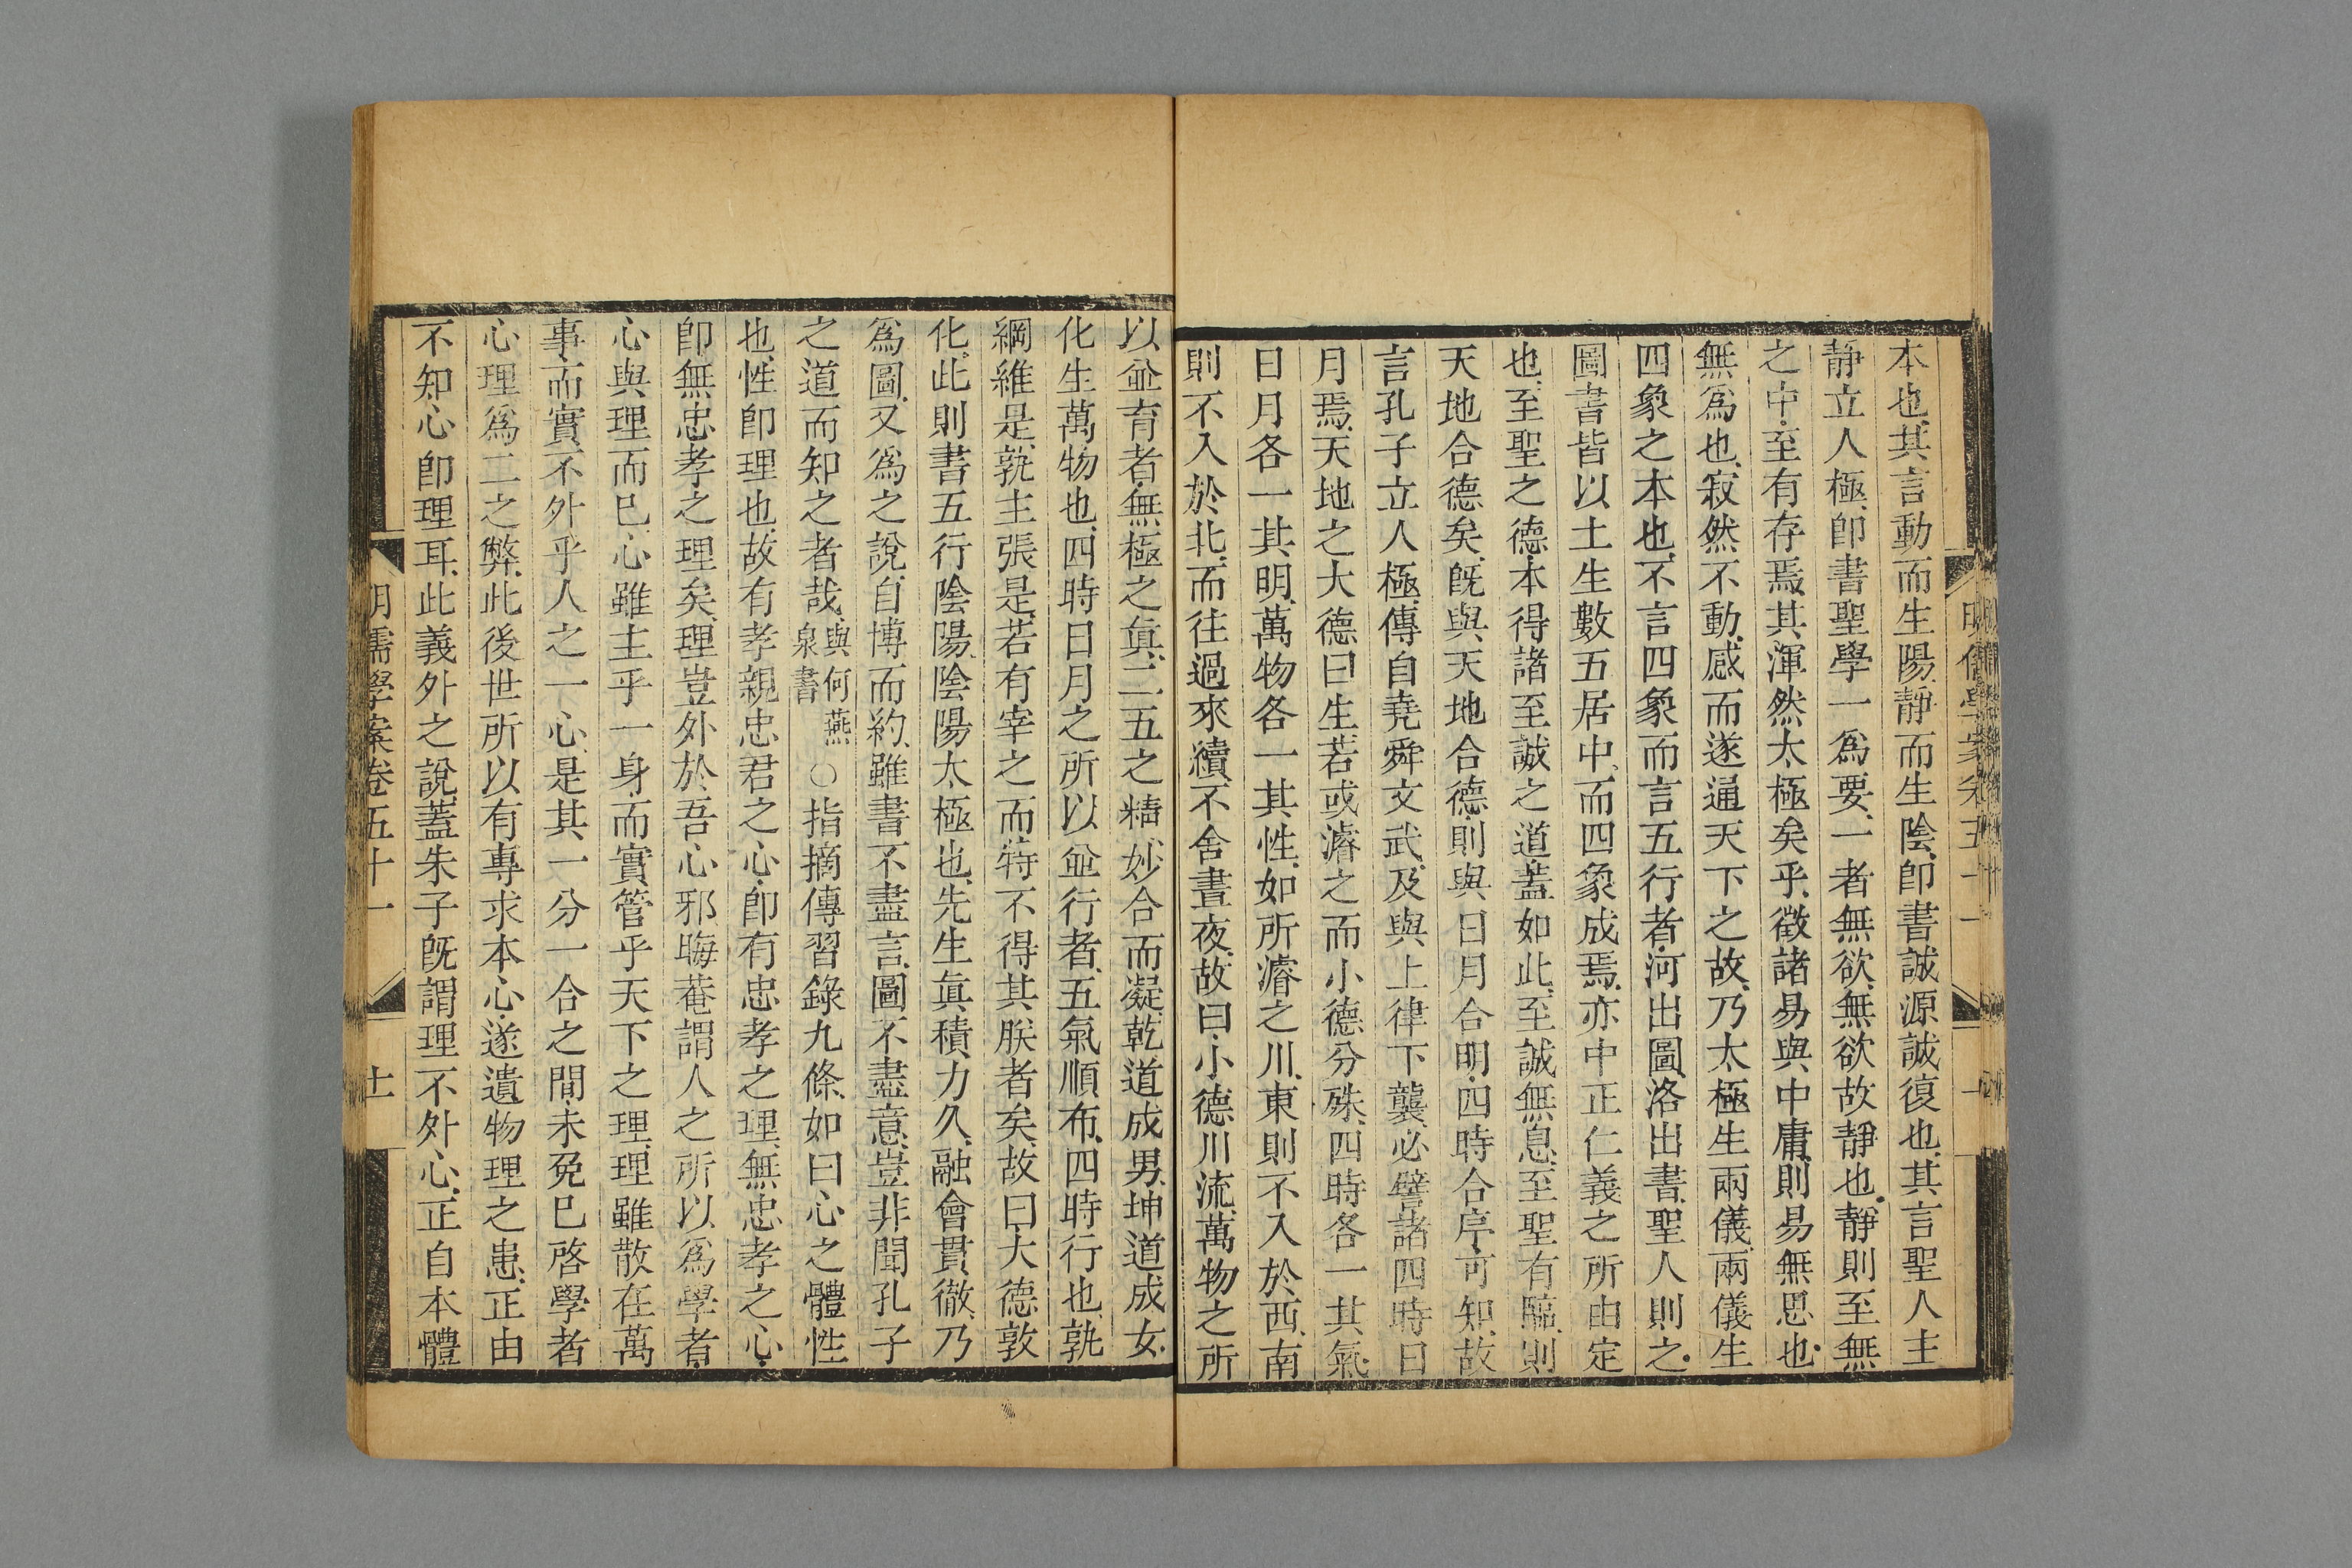 本也其言動而生陽靜而生陰卽書誠源誠復也其言聖人主
靜立人極卽書聖學一爲要一者無欲無欲故靜也靜則至無
之中至有存焉其渾然太極矣乎徵諸易與中庸則易無思也
無爲也寂然不動感而遂通天下之故乃太極生兩儀兩儀生
四象之本也不言四象而言五行者河出圖洛出書聖人則之
圖書皆以土生數五居中而四象成焉亦中正仁義之所由定
也至聖之德本得諸至誠之道蓋如此至誠無息至聖有臨則
天地合德矣旣與天地合德則與日月合明四時合序可知故
言孔子立人極傳自堯舜文武及與上律下襲必譬諸四時日
月焉天地之大德曰生若或濬之而小德分殊四時各一其氣
日月各一其明萬物各一其性如所濬之川東則不入於西南
則不入於北而往過來續不舍晝夜故曰小德川流萬物之所
以並育者無極之眞二五之精妙合而凝乾道成男坤道成女
化生萬物也四時日月之所以並行者五氣順布四時行也孰
綱維是孰主張是若有宰之而特不得其朕者矣故曰大德敦
化此則書五行陰陽陰陽太極也先生眞積力久融會貫徹乃
爲圖又爲之說自博而約雖書不盡言圖不盡意豈非聞孔子
之道而知之者哉與何燕泉書○指摘傳習錄九條如曰心之體性
也性卽理也故有孝親忠君之心卽有忠孝之理無忠孝之心
卽無忠孝之理矣理豈外於吾心邪晦菴謂人之所以爲學者
心與理而已心雖主乎一身而實管乎天下之理理雖散在萬
事而實不外乎人之一心是其一分一合之間未免已啓學者
心理爲二之弊此後世所以有專求本心遂遺物理之患正由
不知心卽理耳此義外之說蓋朱子旣謂理不外心正自本體
明儒學案卷五十一
十一